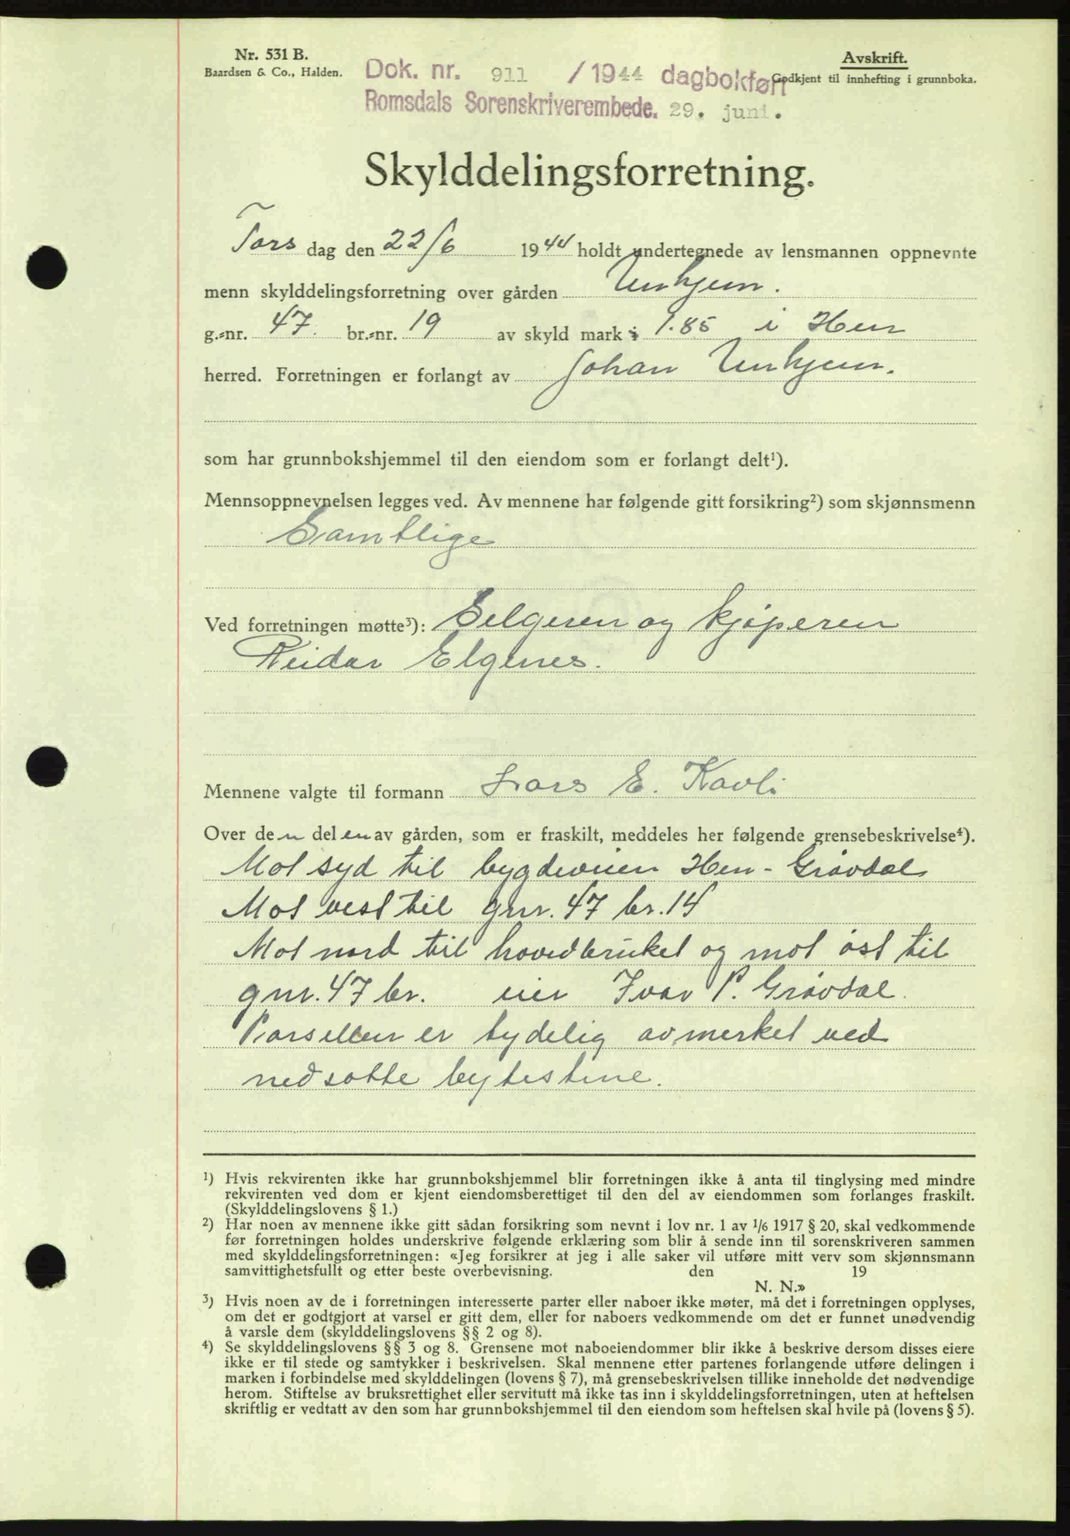 Nr. 531 B.
Baardsen & Co., Halden.
Avskrift.
Godkjent til innhefting i grunnboka.
Dok. nr. 911 /1944 dagbokført
Romsdals Sorenskriverembede. 29. juni.
Skylddelingsforretning.
Tors dag den 22/6 1944 holdt undertegnede av lensmannen oppnevnte
menn skylddelingsforretning over gården Unhjem.
g.-nr. 47. br.-nr. 19 av skyld mark 1.85 i Hen
herred. Forretningen er forlangt av Johan Unhjem.
som har grunnbokshjemmel til den eiendom som er forlangt delt¹).
Mennsoppnevnelsen legges ved. Av mennene har følgende gitt forsikring²) som skjønnsmenn
Samtlige
Ved forretningen møtte³): Selgeren og kjøperen
Reidar Elgenes.
Mennene valgte til formann Lars E. Kavli
Over den delen av gården, som er fraskilt, meddeles her følgende grensebeskrivelse⁴).
Mot syd til bygdeveien Hen - Grøvdal
Mot vest til gnr. 47 br. 14
Mot nord til hovedbruket og mot øst til
gnr. 47 br. eier Ivar P. Grøvdal.
Parsellen er tydelig avmerket ved
nedsatte bytestene.
¹) Hvis rekvirenten ikke har grunnbokshjemmel blir forretningen ikke å anta til tinglysing med mindre
rekvirenten ved dom er kjent eiendomsberettiget til den del av eiendommen som forlanges fraskilt.
(Skylddelingslovens § 1.)
²) Har noen av mennene ikke gitt sådan forsikring som nevnt i lov nr. 1 av 1/6 1917 § 20, skal vedkommende
før forretningen holdes underskrive følgende erklæring som blir å sende inn til sorenskriveren sammen
med skylddelingsforretningen: «Jeg forsikrer at jeg i alle saker vil utføre mitt verv som skjønnsmann
samvittighetsfullt og etter beste overbevisning. den 19
N. N.»
³) Hvis noen av de i forretningen interesserte parter eller naboer ikke møter, må det i forretningen opplyses,
om det er godtgjort at varsel er gitt dem, eller for naboers vedkommende om det er funnet unødvendig
å varsle dem (skylddelingslovens §§ 2 og 8).
⁴) Se skylddelingslovens §§ 3 og 8. Grensene mot naboeiendommer blir ikke å beskrive dersom disses eiere
ikke er til stede og samtykker i beskrivelsen. Skal mennene etter partenes forlangende utføre delingen i
marken i forbindelse med skylddelingen (lovens § 7), må grensebeskrivelsen tillike inneholde det nødvendige
herom. Stiftelse av bruksrettighet eller servitutt må ikke tas inn i skylddelingsforretningen, uten at heftelsen
skriftlig er vedtatt av den som har grunnbokshjemmel til den eiendom som heftelsen skal hvile på (lovens § 5).